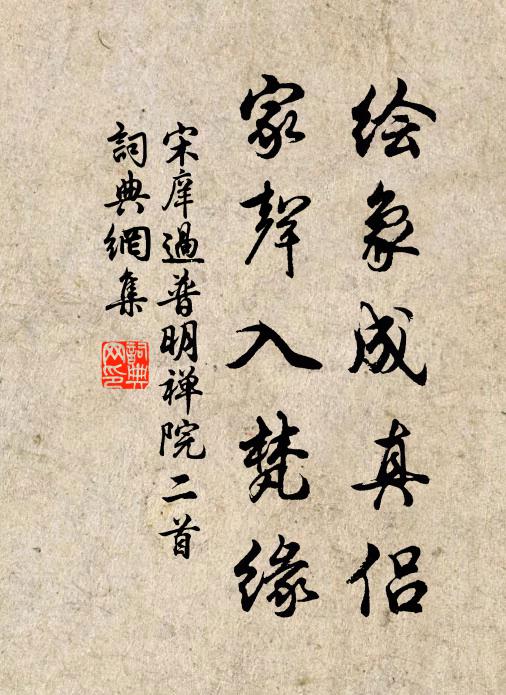 绘象成真侣
家聲入梵缘
宋庠過普明禅院二首
詞典網集
詞典網印